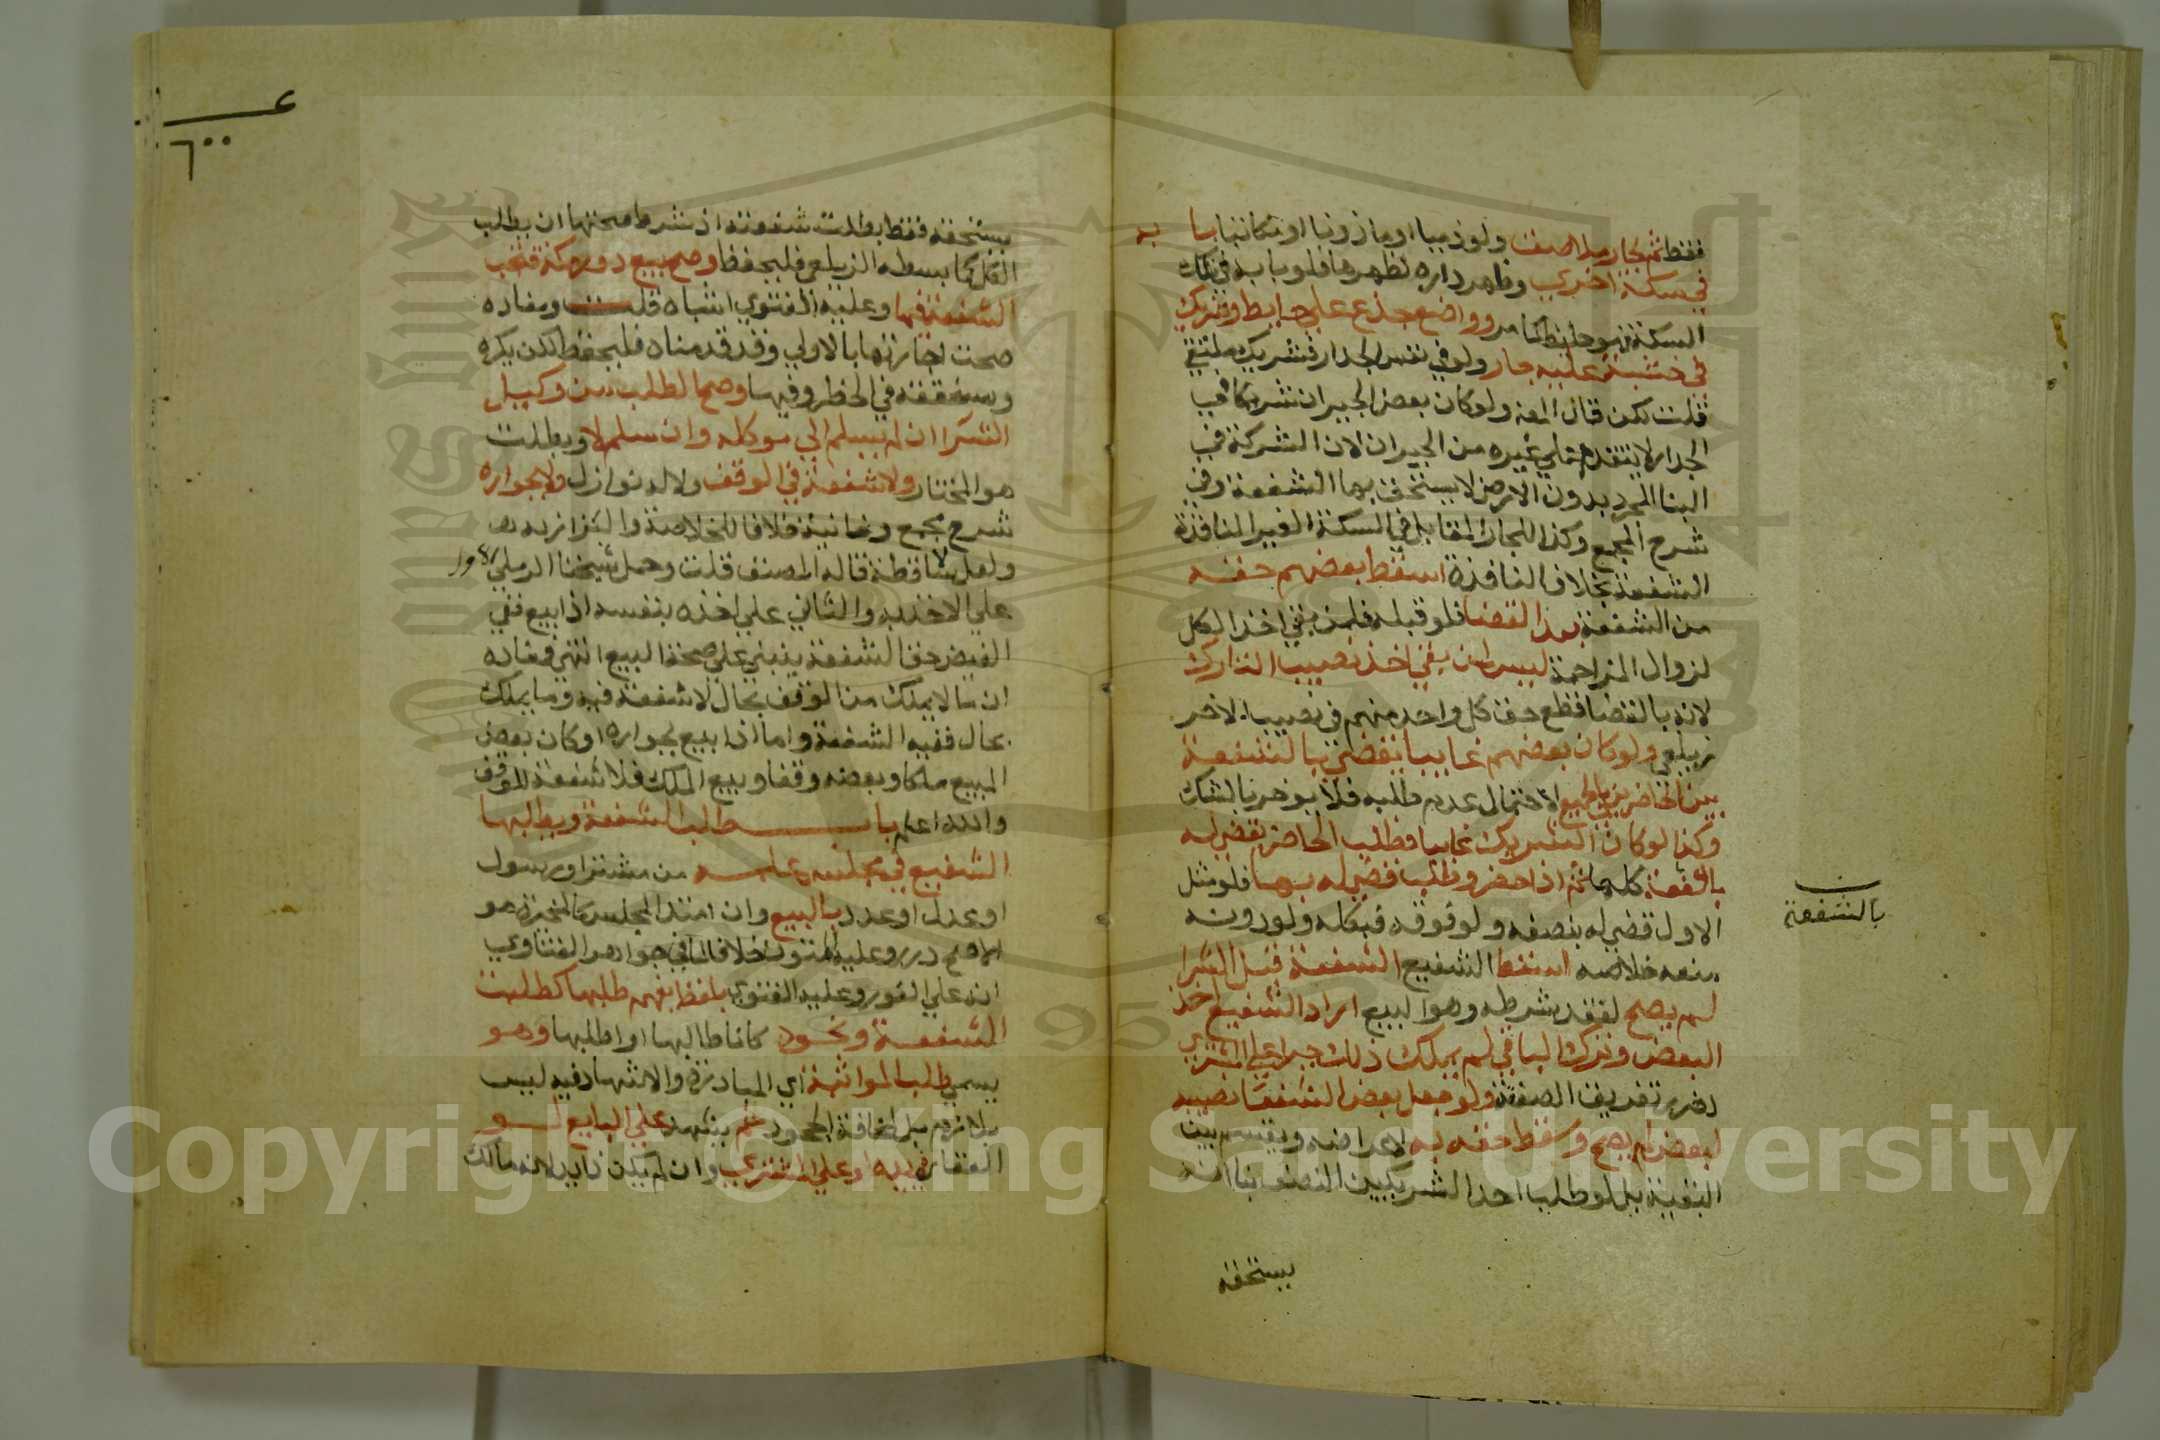 فقط ثم لجار ملاصق ولو ذميا او ماذونا او مكاتبا بابه
في سكة اخري وظهر داره لظهرها فلو بابه في تلك
السكة فهو خليط كما مر وواضع جذع علي حايط وشريك
في خشبة عليه جار ولو في نفس الجدار فشريك ملتقي
قلت لكن قال المص ولو كان بعض الجيران شريكا في
الجدار لا يتقدم علي غيره من الجيران لان الشركة في
البنا المجرد بدون الارض لا يستحق بها الشفعة وفي
شرح المجمع وكذا للجار المقابل في السكة الغير النافذة
الشفعة بخلاف النافذة اسقط بعضهم حقه
من الشفعة بعد القضا فلو قبله فلمن بقي اخذ الكل
لزوال المزاحمة ليس لمن بقي اخذ نصيب التارك
لانه بالقضا قطع حق كل واحد منهم في نصيب الاخر
زيلعي ولو كان بعضهم غايبا يقضي بالشفعة
بين الحاضرين في الجميع لاحتمال عدم طلبه فلا يوخر بالشك
وكذا لو كان الشريك غايبا فطلب الحاضر يقضي له
بالشفعة كلها ثم اذا حضر وطلب قضي له بها فلو مثل
بالشفعة
الاول قضي له بنصفه ولو فوقه فبكله ولو دونه
منعه خلاصه اسقط الشفيع الشفعة قبل الشرا
لم يصح لفقد شرطه وهو البيع اراد الشفيع اخذ
البعض وترك الباقي لم يملك ذلك جبرا علي المشتري
لضرر تفريق الصفقة ولو جعل بعض الشفعا نصيبه
لبعض لم يصح وسقط حقه به لاعراضه ويقسم بين
البقية بل لو طلب احد الشريكين النصف بنا انه
يستحقه
يستحقه فقط بطلت شفعته اذ شرط صحتها ان يطلب
الكل كما بسطه الزيلعي فليحفظ وصح بيع دور مكة فتجب
الشفعة فيها وعليه الفتوي اشباه قلت ومفاده
صحت اجارتها بالاولي وقد قدمناه فليحفظ لكن يكره
وسنحققه في الحظر وفيها وصح الطلب من وكيل
الشرا ان لم يسلم الي موكله وان سلم لا وبطلت
هو المختار ولا شفعة في الوقف ولا له نوازل ولا بجواره
شرح مجمع وخانية خلافا للخلاصة والبزازية
ولعل لا ساقطة قاله المصنف قلت وحمل شيخنا الرملي الاول
علي الاخذ به والثاني علي اخذه بنفسه اذا بيع ففي
الفيض حق الشفعة ينبني علي صحة البيع انتهي فمفاده
ان ما لا يملك من الوقف بحال لا شفعة فيه وما يملك
بحال ففيه الشفعة واما اذا بيع بجواره او كان بعض
المبيع ملكا وبعضه وقفا وبيع الملك فلا شفعة للوقف
والله اعلم باب طلب الشفعة ويطلبها
الشفيع في مجلس علمه من مشتر او رسول
او عدل او عدد بالبيع وان امتد المجلس كالمخيرة هو
الاصح درر وعليه المتون خلافا لما في جواهر الفتاوي
انه علي الفور وعليه الفتوي بلفظ يفهم طلبها كطلبت
الشفعة ونحوه كانا طالبها او اطلبها وهو
يسمي طلب المواثبة اي المبادرة والاشهاد فيه ليس
بلازم بل لمخافة الجحود ثم يشهد علي البايع لو
العقار في يده او علي المشتري وان لم يكن ذا يد لانه مالك